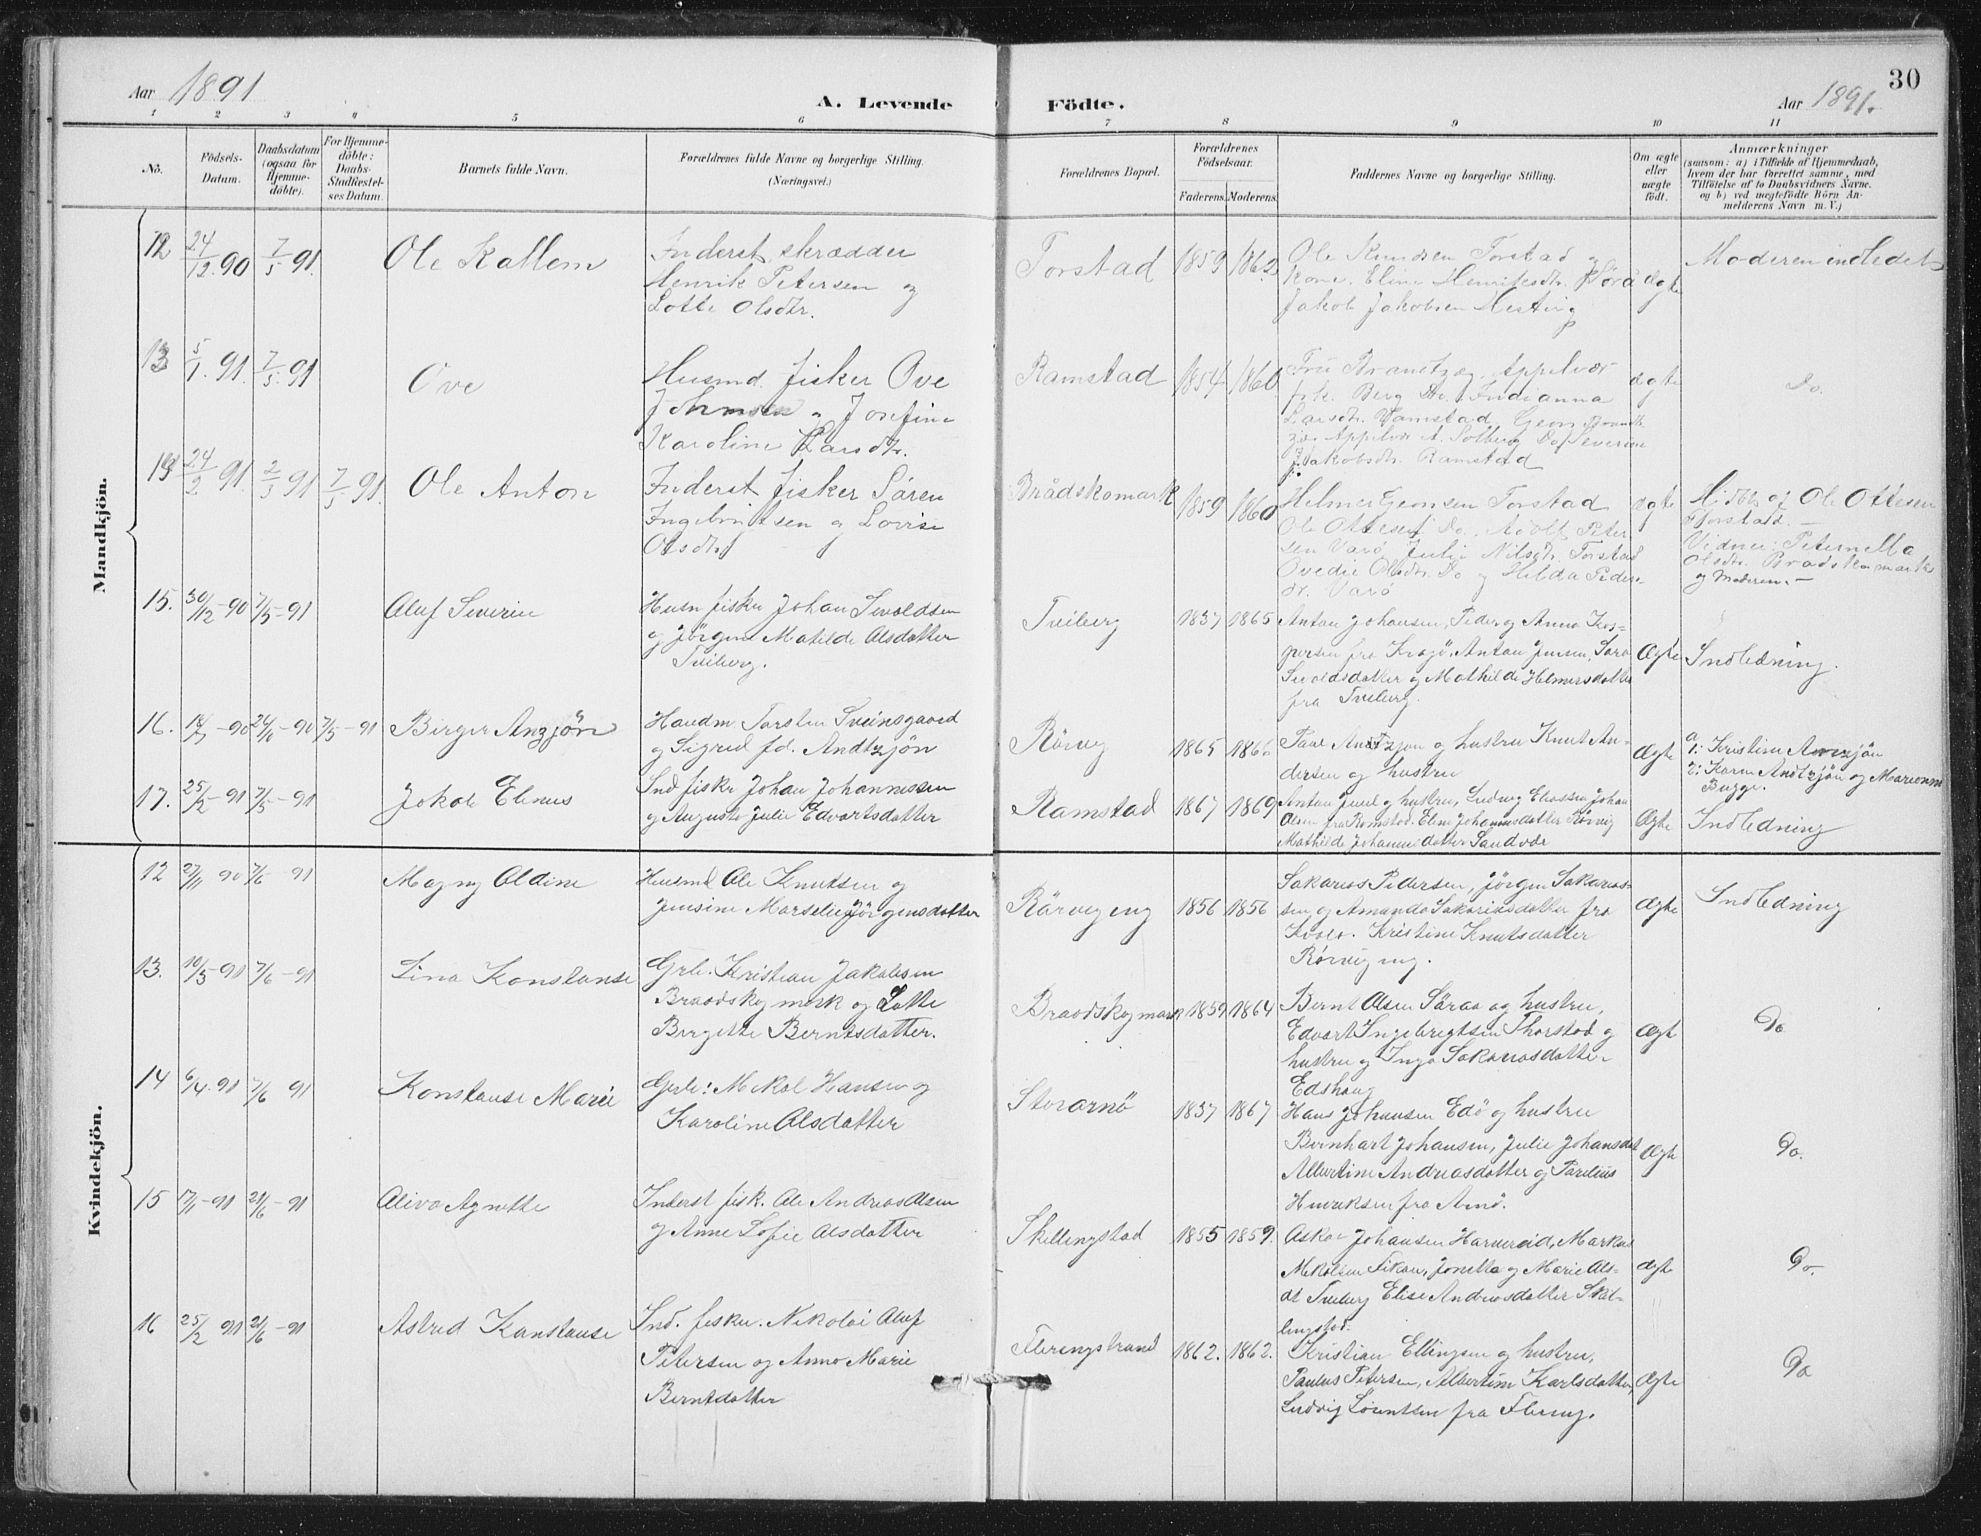 30
Aar 1891
A. Levende Födte.
Aar 1891.
1 2 3 4 5 6 7 8 9 10 11
No.
Födsels-
Datum.
Daabsdatum
(ogsaa for
Hjemme-
döbte).
For Hjemme-
döbte:
Daabs-
Stadfæstel-
ses Datum.
Barnets fulde Navn.
Forældrenes fulde Navne og borgerlige Stilling.
(Næringsvei.)
Forældrenes Bopæl.
Forældrenes
Födselsaar.
Faderens. Moderens.
Faddernes Navne og borgerlige Stilling.
Om ægte
eller
uægte
födt.
Anmærkninger
(saasom: a) i Tilfælde af Hjemmedaab,
hvem der har forrettet samme, med
Tilföielse af to Daabsvidners Navne.
og b) ved uægtefödte Börn An-
melderens Navn m. V.)
Mandkjön.
12 24/12 90 7/5 91. Ole Kallem
Inderst, skrædder
Henrik Petersen og
Lotte Olsdtr.
Torstad 1859 1862
Ole Knudsen Torstad og
Kone. Eline Henriksdtr.
Jakob Jakobsen
ægte
Moderen indledet
13 5/1 91. 7/5 91 Ove
Husmd. fisker Ove
Johnsen og Josefine
Karoline Larsdtr.
Ramstad 1854 1860
Fru Brandtzæg, Appelvær
frk. Berg Do. Indianna
Larsdtr. Ramstad Georg
Appelvær A. Solberg Do Severine
Jakobsdtr. Ramstad
ægte
Do.
14 24/2 91. 2/3 91 7/5 91. Ole Anton
Inderst fisker Sören
Ingebrigtsen og Lovise
Olsdtr.
Brådskomark 1859 1860
Helmer Geonsen Torstad
Ole Ottesen Do, Adolf Peter
sen Varö, Julie Nilsdtr. Torstad
Ovedie Olsdtr. Do og Hilda Peders
dr. Varö
ægte
Hj. dbt. af Ole Ottesen
Torstad. –
Vidner: Peternella
Olsdtr. Bradskomark
og Moderen. –
15. 30/12-90 7/5-91 Oluf Severin
Husm fisker Johan Sevoldsen
og Jörgine Matilde Olsdatter
Tviberg.
Tviberg 1837 1865
Anton Johansen, Peder og Anna Kas-
persen fra Kvagö. Anton Jensen, Sara
Sevoldsdatter og Mathilde Helmersdatter
fra Tviberg.
Ægte
Indledning.
16. 14/7-90 24/8-90 7/5-91 Birger Anzjön
Handm. Torsten Sveinsgaard
og Sigrid fd. Andtzjön
Rörvig 1865 1866
Paul Andtzjön og hustru Knut An-
dersen og hustru
Ægte
a
1: Kristine Anzjön
2: Karen Andtzjön og Marianne
Bugge.
17. 25/2-91 7/5-91 Jakob Elenus
Ind fisker Johan Johannessen
og Augusta Julie Edvartsdatter
Ramstad 1867 1869
Anton Juul og hustru, Ludvig Eliassen Johan
Olsen fra Ramstad. Eline Johannesdatter Rörvig
Mathilde Johannesdatter Sandvær
Ægte
Indledning
Kvindekjön.
12 27/11 90 7/6 91 Magny Oldine
Husmd Ole Knutsen og
Jensine Marselie Jörgensdatter
Rörvigeng 1856 1856
Sakarias Pedersen, Jörgen Sakarias-
sen og Amanda Sakariasdatter fra
Kvalö. Kristine Knutsdatter
Rörvigeng.
Ægte
Indledning
13. 10/3-91 7/6-91 Lina Konstanse
Grb. Kristian Jakobsen
Braadskogmark og Lotte
Birgitte Berntsdatter.
Braadskogmark 1859 1864
Bernt Olsen Såraa og hustru,
Edvart Ingebrigtsen Thorstad og
hustru og Inga Sakariasdatter
Edshaug
Ægte
Do
14 6/4.91 7/6 91 Konstanse Marie
Grb: Mikal Hansen og
Karoline Olsdatter
Storarnö 1837 1867
Hans Johansen Edö og hustru
Bernhart Johansen, Julie Johansdat
Albertine Andreasdatter og Parelius
Henriksen fra Arnö.
Ægte
Do.
15 17/1-91 21/6-91 Oliva Agnette
Inderst fisk. Ole Andreas Olsen
og Anne Sofie Olsdatter
Skillingstad 1855 1859.
Askar Johansen Harneroid, Markus
Mikalsen Fikau, Jonetta og Marie Ols-
dt Tviberg Elise Andreasdatter Skil-
lingstad.
Ægte
Do.
16 25/2 91 21/6-91 Astrid Konstanse
Ind. fisker. Nikolai Oluf
Petersen og Anna Marie
Berntdatter
Flerengstrand 1862. 1862.
Kristian Ellingsen og hustru,
Paulus Petersen, Albertine Karlsdatter,
Ludvig Lorentsen fra Flereng.
Ægte
Do